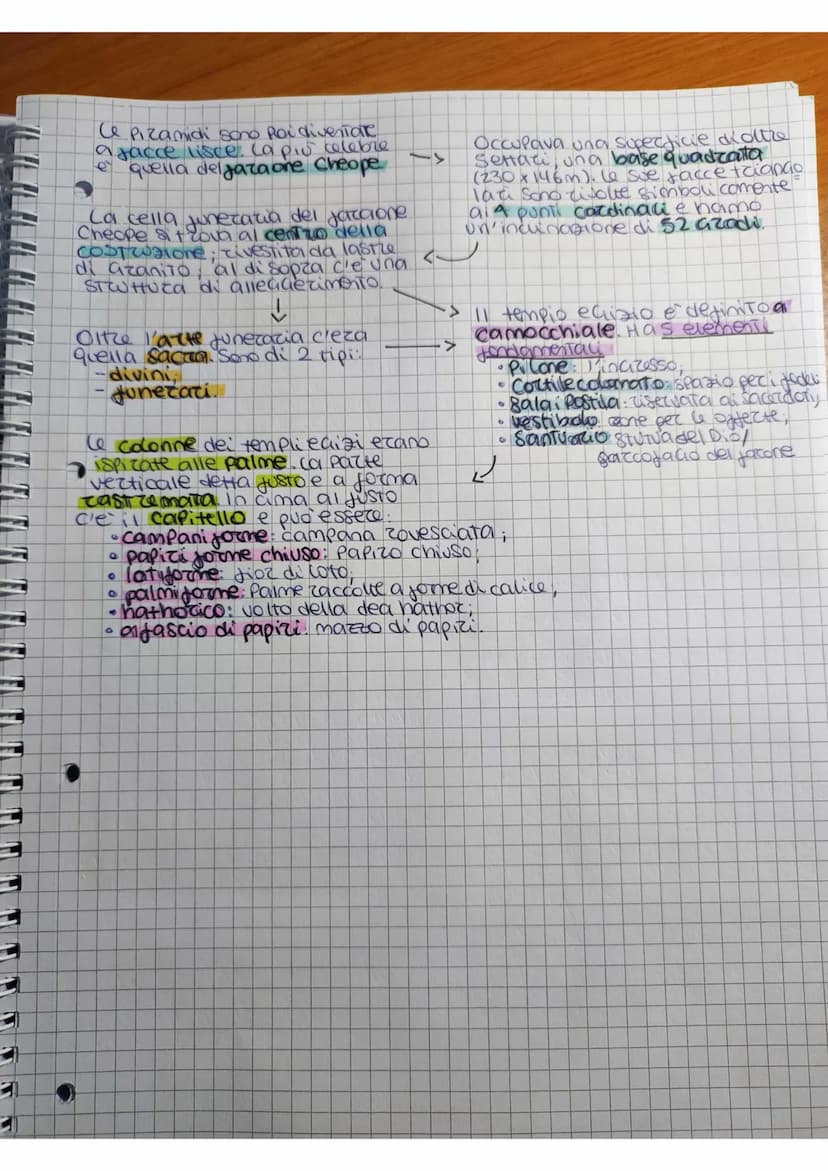 Le piramidi sono poi diventate
a facce lisce. La più celebre
è quella del faraone Cheope
Occupava una superficie di oltre
5 ettari, una base quadrata
(230 x 146m). Le sue facce triango=
lati sono rivolte simbolicamente
ai 4 punti cardinali e hanno
un'inclinazione di 52 gradi.
La cella funeraria del faraone
Cheope si trova al centro della
costruzione; rivestita da lastre
di granito; al di sopra c'è una
struttura di alleggerimento.
Oltre l'arte funeraria c'era
quella sacra. Sono di 2 tipi:
- divini;
- funerari.
Il tempio egizio è definito a
camocchiale. Ha 5 elementi
fondamentali
• Pilone: l'ingresso;
• Cortile colonnato: spazio per i fedeli
• Sala ipostila: riservata ai sacerdoti;
• vestibolo: zone per le offerte;
• Santuario statua del Dio/
sarcofago del farone
Le colonne dei templi egizi erano
ispirate alle palme. La parte
verticale detta fusto è a forma
rastremata. In cima al fusto
c'è il capitello e può essere:
• campaniforme: campana rovesciata;
• papiriforme chiuso: papiro chiuso;
• lotiforme: fior di loto;
• palmiforme: palme raccolte a forme di calice;
• hathorico: volto della dea hathor;
• a fascio di papiri: mazzo di papiri.